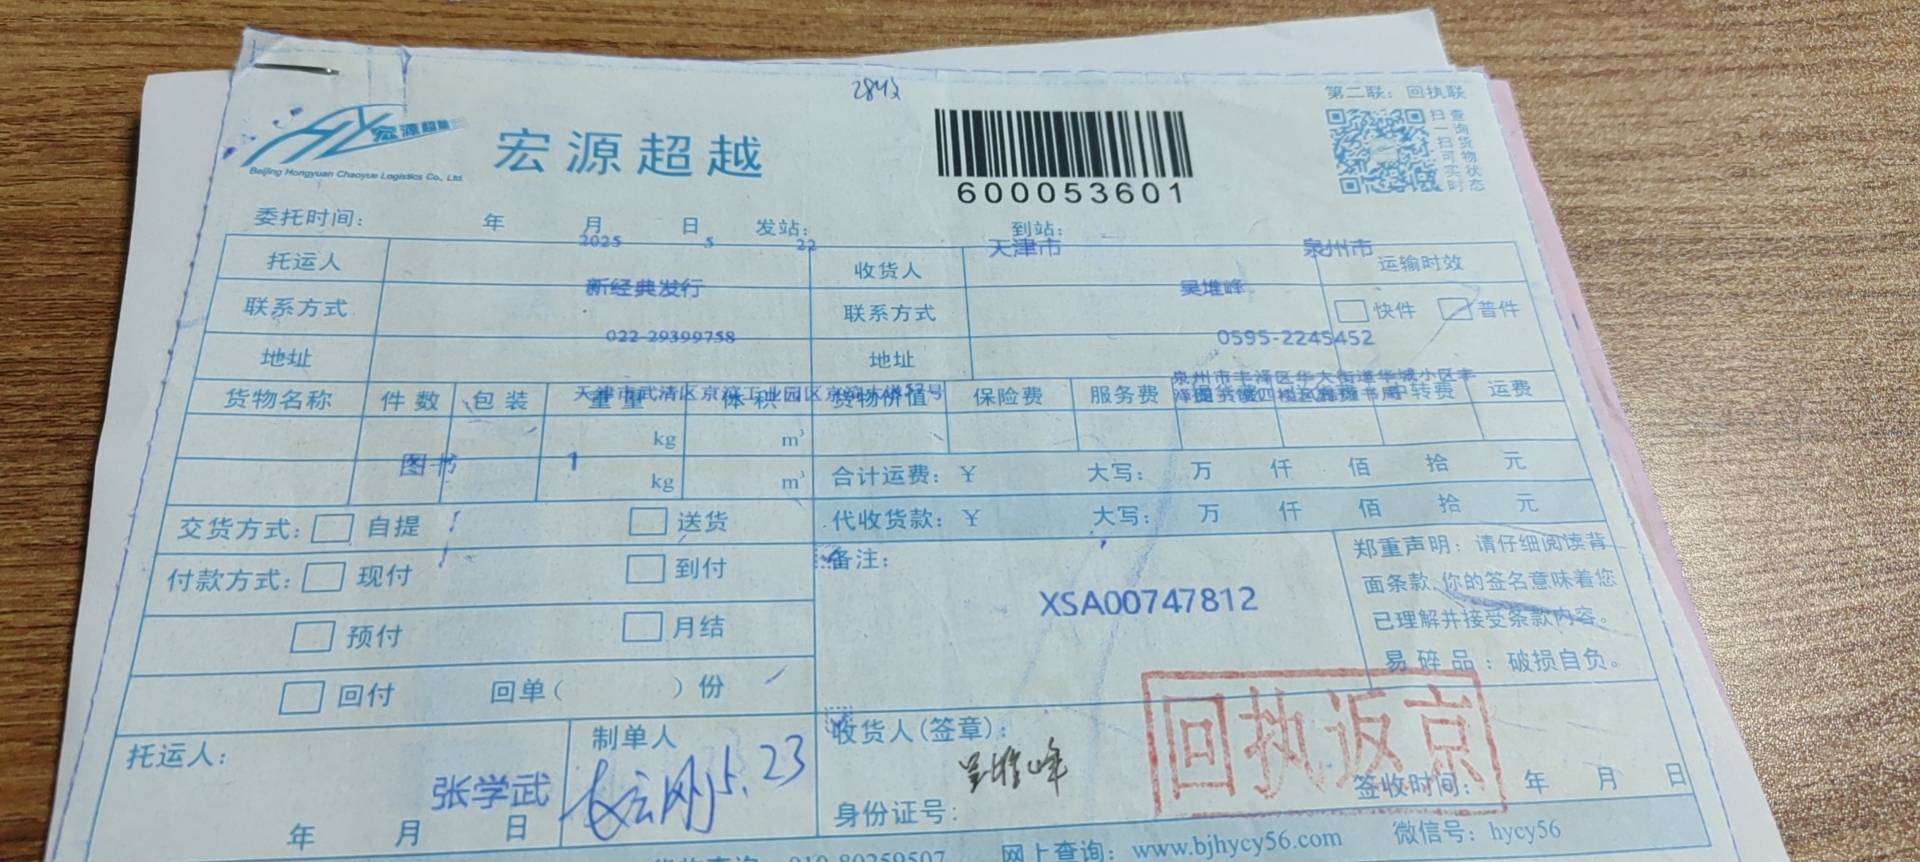 第二联：回执联
宏源超越
Beijing Hongyuan Chaoyue Logistics Co., Ltd.
宏源超越
600053601
扫一扫可实时
查询货物状态
委托时间： 年 月 日 发站： 到站：
2025 5 22 天津市 泉州市
托运人 收货人 运输时效
新经典发行 吴堆峰
联系方式 联系方式 快件 普件
022-29399758 0595-2245452
地址 地址
天津市武清区京滨工业园区京滨大道53号
泉州市丰泽区华大街道华城小区丰
货物名称 件数 包装 重量 体积 货物价值 保险费 服务费 中转费 运费
kg m³
图书 1
kg m³
合计运费：￥ 大写： 万 仟 佰 拾 元
代收货款：￥ 大写： 万 仟 佰 拾 元
交货方式： 自提 送货
付款方式： 现付 到付
预付 月结
回付 回单（ ）份
备注：
XSA00747812
郑重声明：请仔细阅读背
面条款，你的签名意味着您
已理解并接受条款内容。
易碎品：破损自负。
托运人：
张学武
年 月 日
制单人
5.23
收货人（签章）：
身份证号：
回执返京
签收时间： 年 月 日
010-80259507 网上查询：www.bjhycy56.com 微信号：hycy56